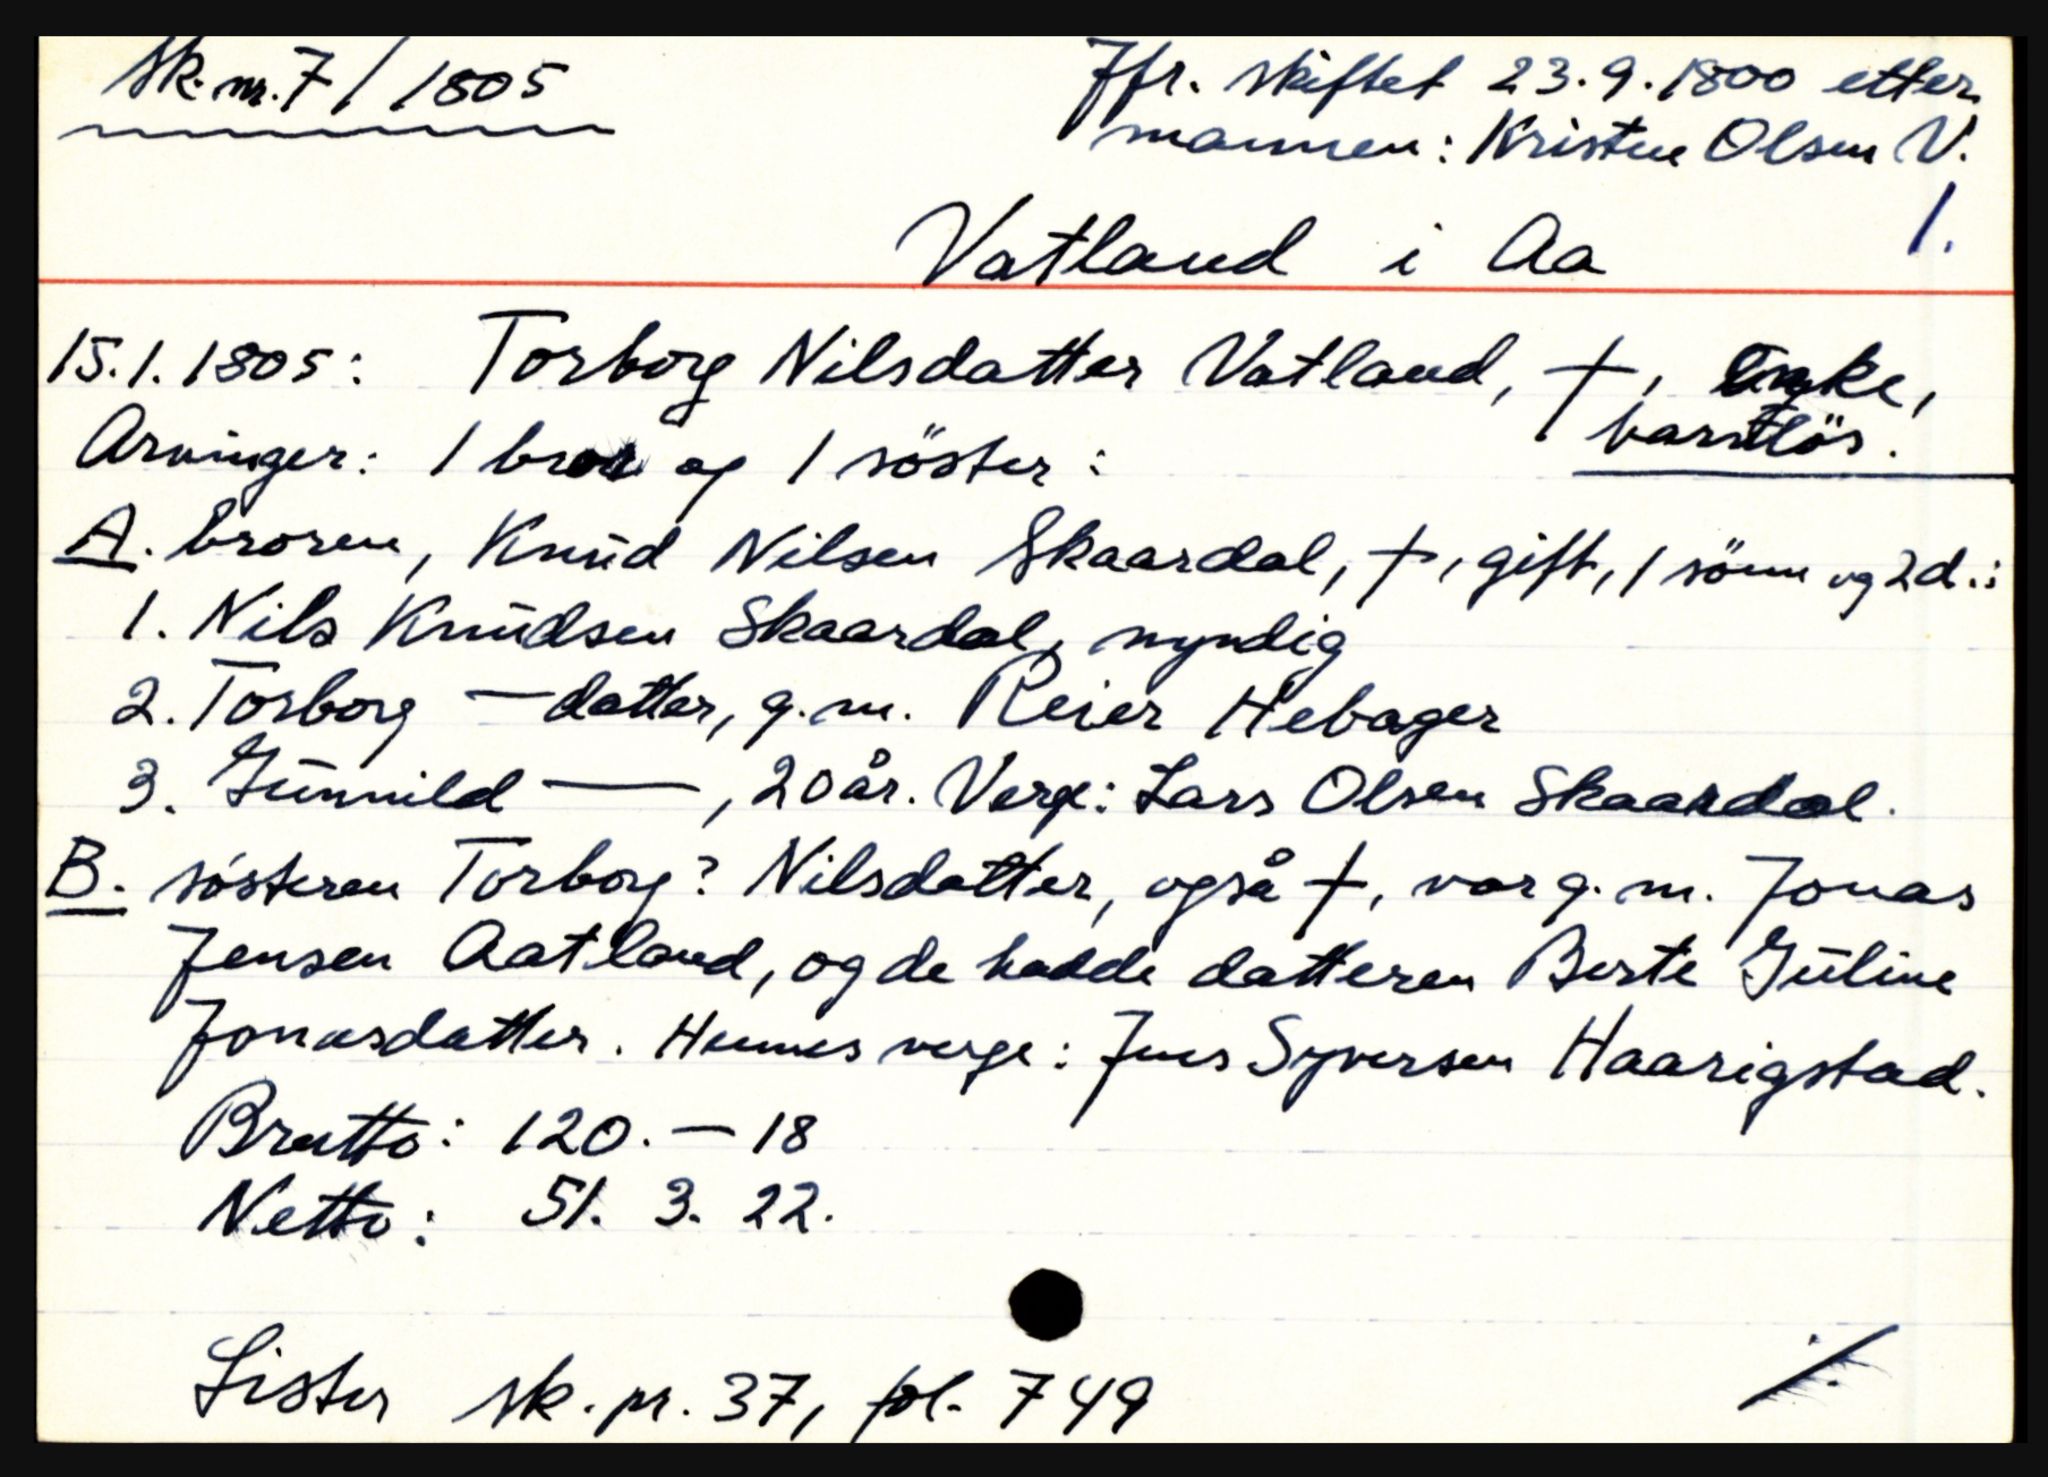 Sk. nr. 7 / 1805
Jfr. skiftet 23.9.1800 etter
mannen: Kristen Olsen V.
1.
Vatland i Aa
15.1.1805: Torborg Nilsdatter Vatland, †, Enke,
barnlös.
Arvinger: 1 bror og 1 söster:
A. broren, Knud Nilsen Skaardal, †, gift, 1 sönn og 2 d.:
1. Nils Knudsen Skaardal, myndig
2. Torborg — datter, g.m. Reier Hebager
3. Gunnild —, 20 år. Verge: Lars Olsen Skaardal.
B. sösteren Torborg? Nilsdatter, også †, var g.m. Jonas
Jensen Aatland, og de hadde datteren Berte Guline
Jonasdatter. Hennes verge: Jens Syversen Haarigstad.
Brutto: 120. — 18
Netto: 51. 3. 22.
Lister sk. pr. 37, fol. 749
./.